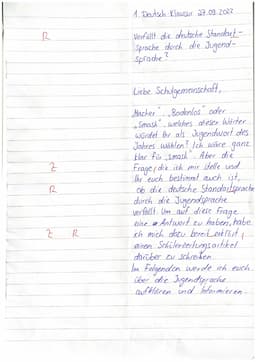 1. Deutsch-Klausur 27.09.2022
R
Verfällt die deutsche Standart-
sprache durch die Jugend-
sprache?
Liebe Schulgemeinschaft,
"Macher", "Bodenlos" oder
"Smash", welches dieser Wörter
würdet ihr als Jugendwort des
Jahres wählen? Ich wäre ganz
klar für "smash". Aber die
Z
Frage, die ich mir stelle und
ihr euch bestimmt auch ist,
R
ob die deutsche Standartsprache
durch die Jugendsprache
verfällt. Um auf diese Frage
eine Antwort zu haben, habe
Z R
ich mich dazu bereit erklärt,
einen Schülerzeitungsartikel
darüber zu schreiben.
Im Folgenden werde ich euch
über die Jugendsprache
aufklären und informieren.